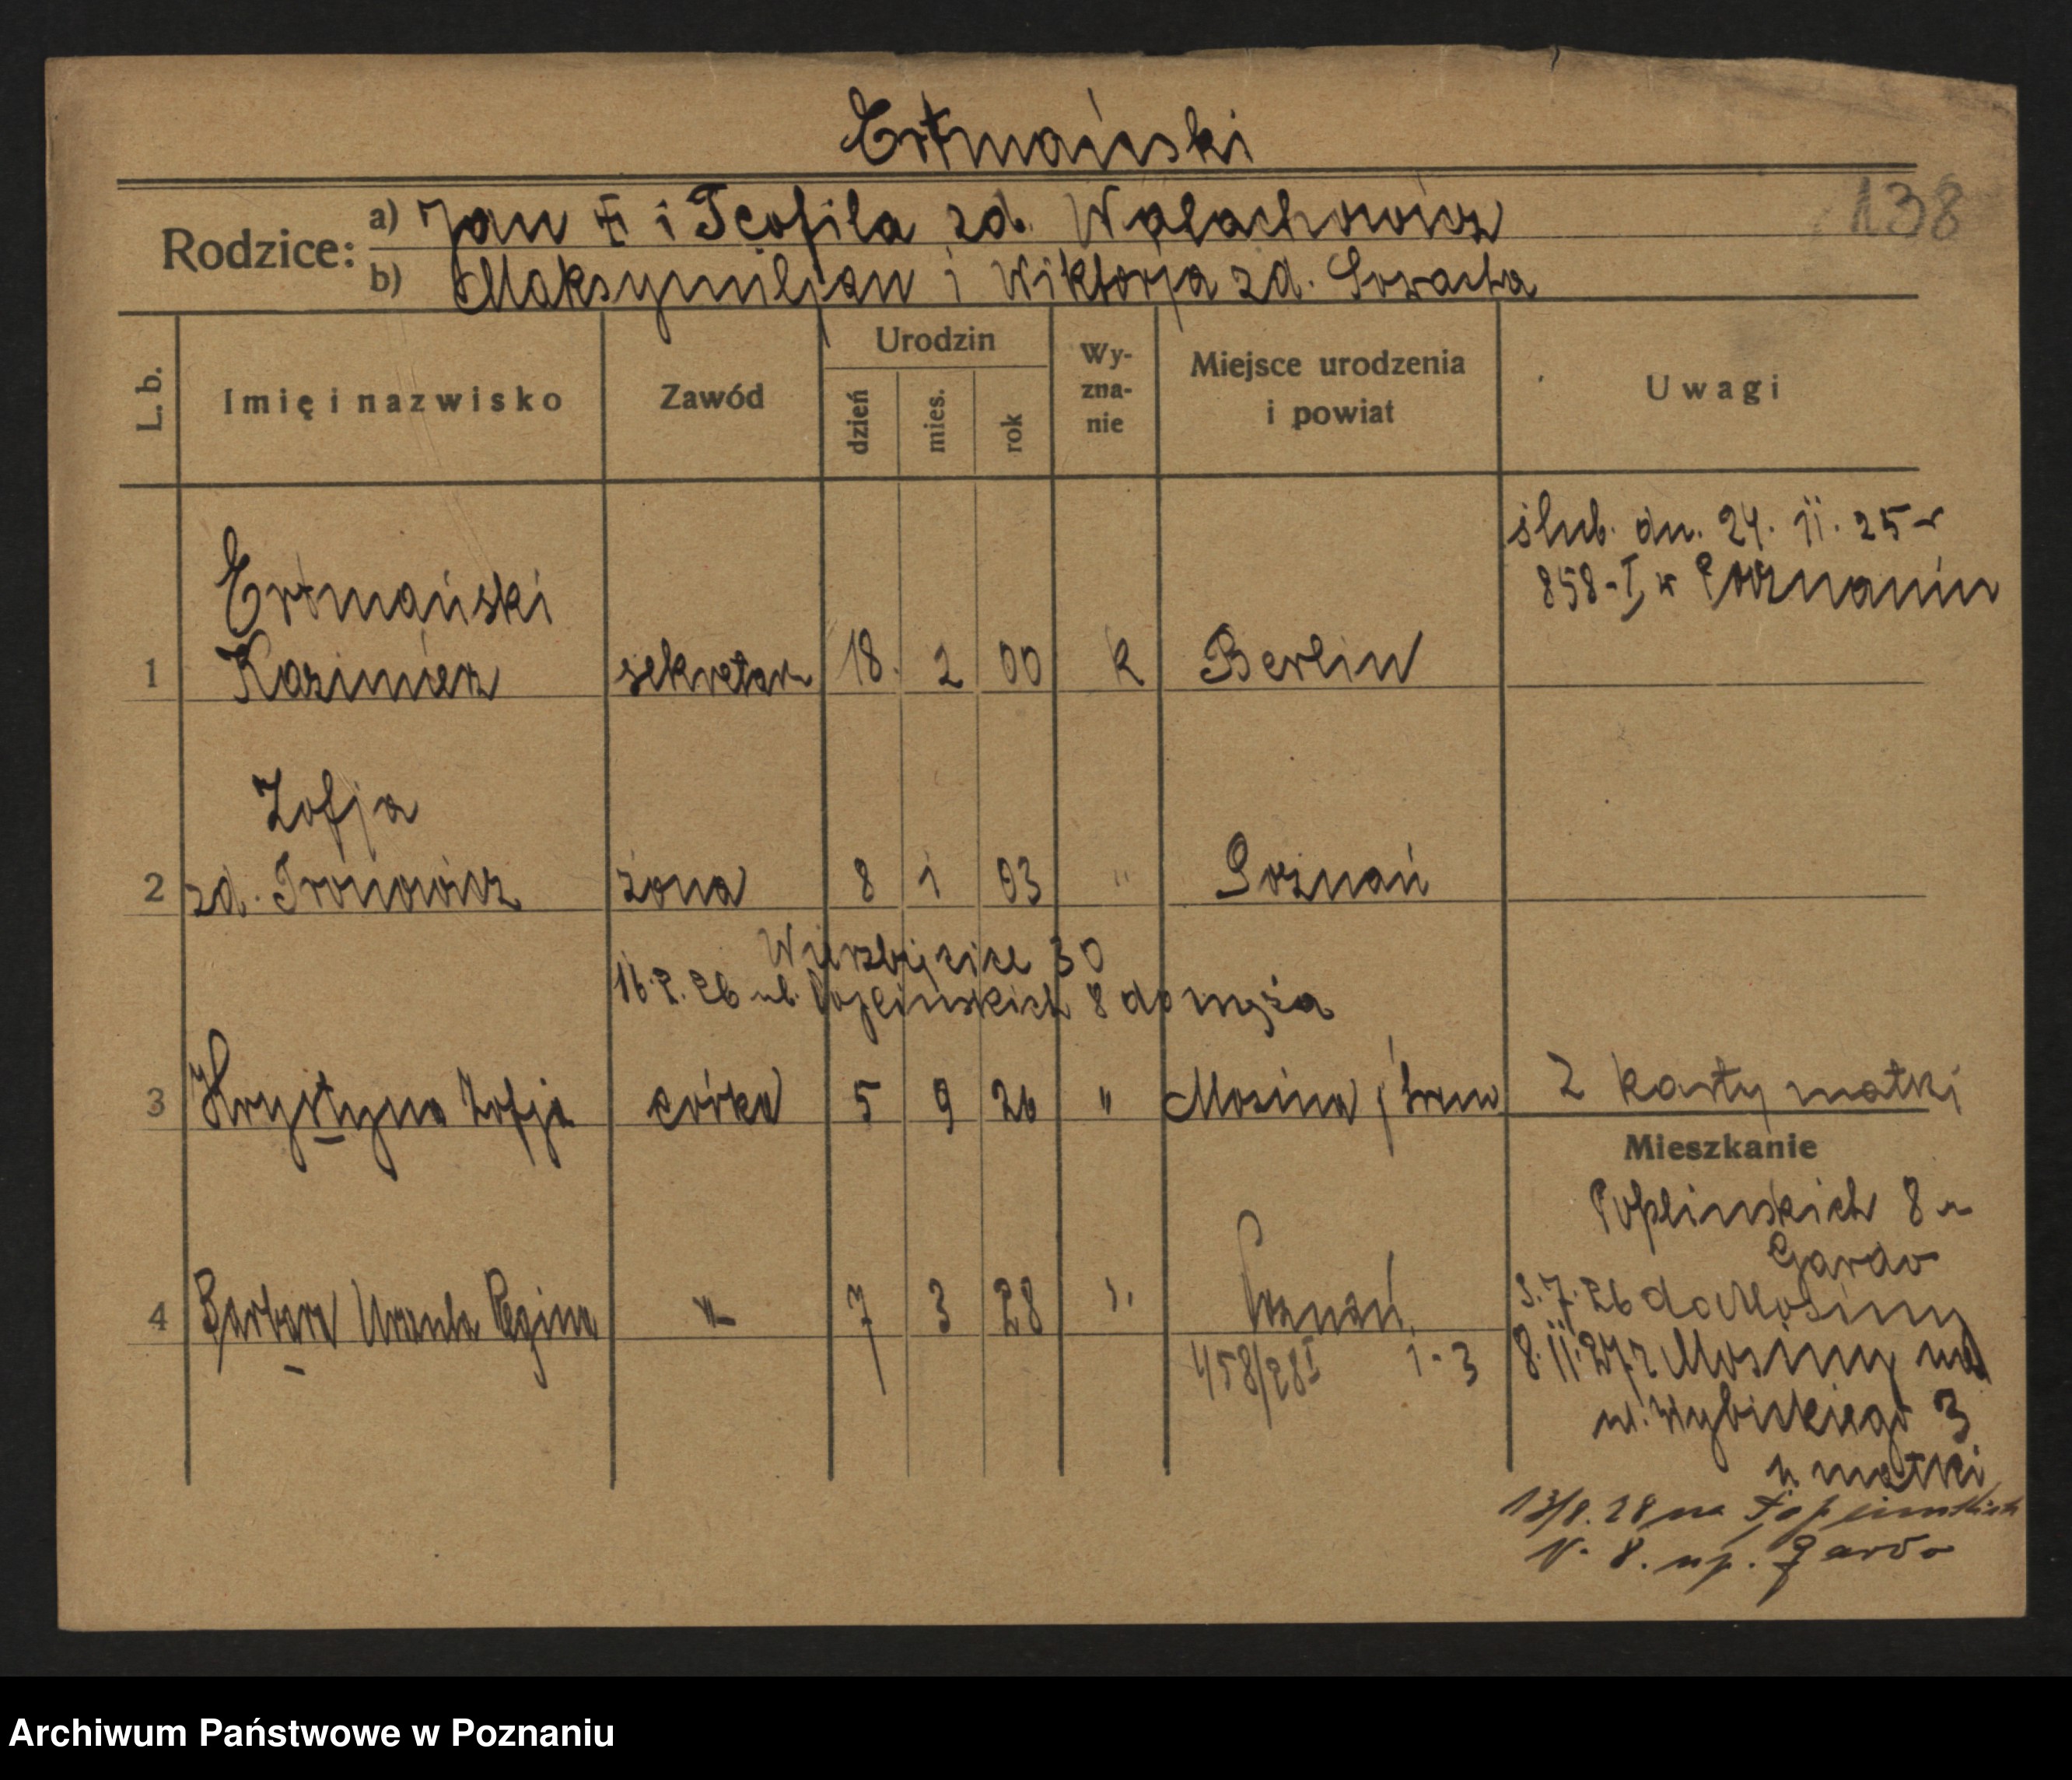 Ertmański
138
Rodzice: a) Jan i Teofila zd. Wałachowicz
b) Maksymiljan i Wiktorja zd.
L. b. Imię i nazwisko Zawód Urodzin dzień mies. rok Wy-zna-nie Miejsce urodzenia i powiat Uwagi
ślub. dn. 24. 11. 25 r
858-I, w Poznaniu
Ertmański
1 Kazimierz sekretarz 18. 2 00 k Berlin
Zofja
2 zd. żona 8 1 03 " Poznań
Wierzbięcice 30
16.2.26 ul. 8 do męża
3 Krystyna Zofja córka 5 9 26 " Mosina / Śrem 2 karty matki
Mieszkanie
Poplinskich 8 u
Gardo
3.7.26 do Mosiny
4 Barbara Urszula Regina " 7 3 28 " Poznań
458/28 I 1-3
8.11.27 z Mosiny na
ul. Wybickiego 3
u matki
13/8.28 na
N. 8. u p. Gardo
Archiwum Państwowe w Poznaniu